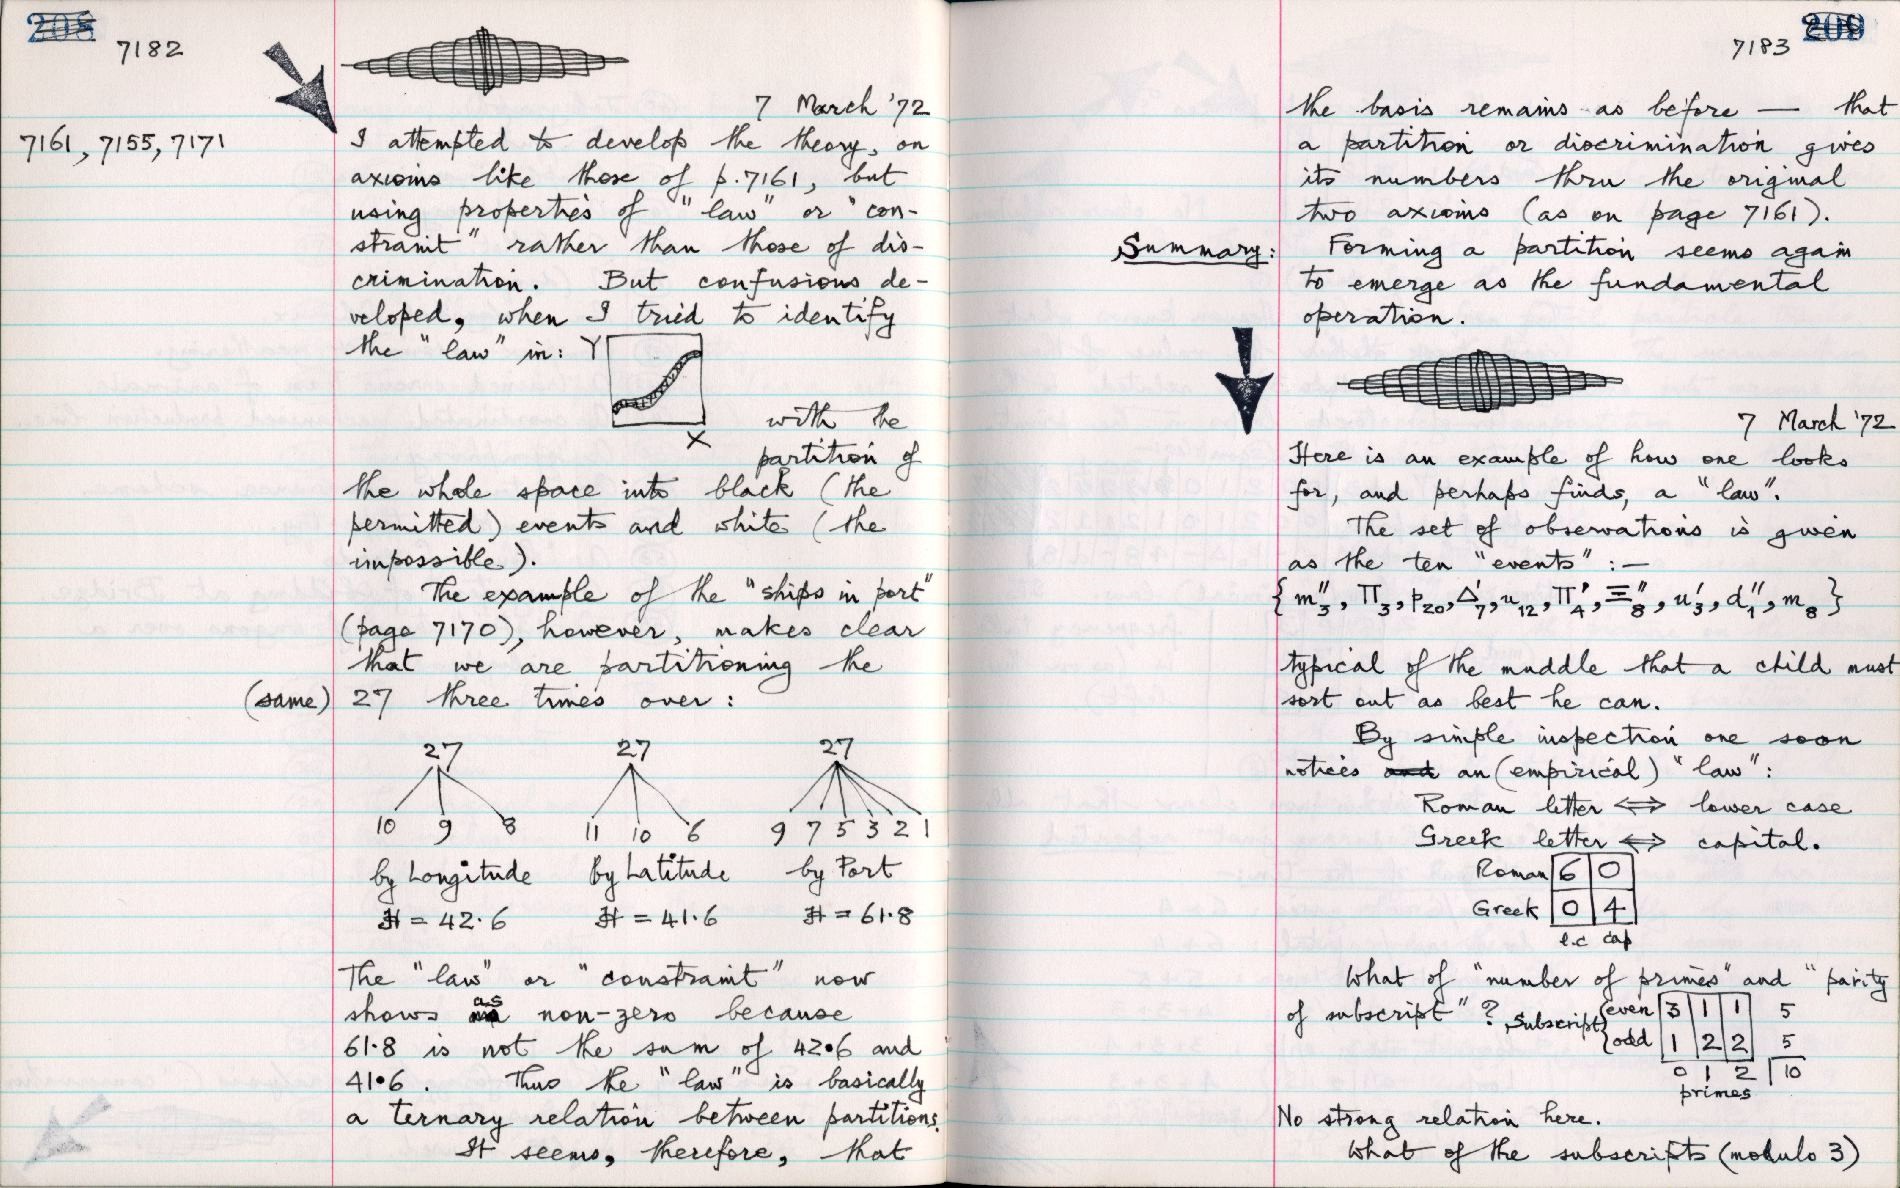 208
7182
7 March '72
7161, 7155, 7171
I attempted to develop the theory, on
axioms like those of p.7161, but
using properties of "law" or "con-
straint" rather than those of dis-
crimination. But confusions de-
veloped, when I tried to identify
the "law" in: Y
X
with the
partition of
the whole space into black (the
permitted) events and white (the
impossible).
The example of the "ships in port"
(page 7170), however, makes clear
that we are partitioning the
(same) 27 three times over:
27 27 27
10 9 8 11 10 6 9 7 5 3 2 1
by Longitude by Latitude by Port
H = 42·6 H = 41·6 H = 61·8
The "law" or "constraint" now
shows as non-zero because
61·8 is not the sum of 42·6 and
41·6. Thus the "law" is basically
a ternary relation between partitions.
It seems, therefore, that
209
7183
the basis remains as before — that
a partition or discrimination gives
its numbers thru the original
two axioms (as on page 7161).
Summary: Forming a partition seems again
to emerge as the fundamental
operation.
7 March '72
Here is an example of how one looks
for, and perhaps finds, a "law".
The set of observations is given
as the ten "events" :—
{m″₃, Π₃, p₂₀, Δ′₇, u₁₂, Π′₄, Ξ″₈, u′₃, d″₁, m₈}
typical of the muddle that a child must
sort out as best he can.
By simple inspection one soon
notices and an (empirical) "law":
Roman letter ⇔ lower case
Greek letter ⇔ capital.
Roman 6 0
Greek 0 4
l.c cap
What of "number of primes" and "parity
of subscript"? Subscript { even 3 1 1 5
odd 1 2 2 5
0 1 2 10
primes
No strong relation here.
What of the subscripts (modulo 3)